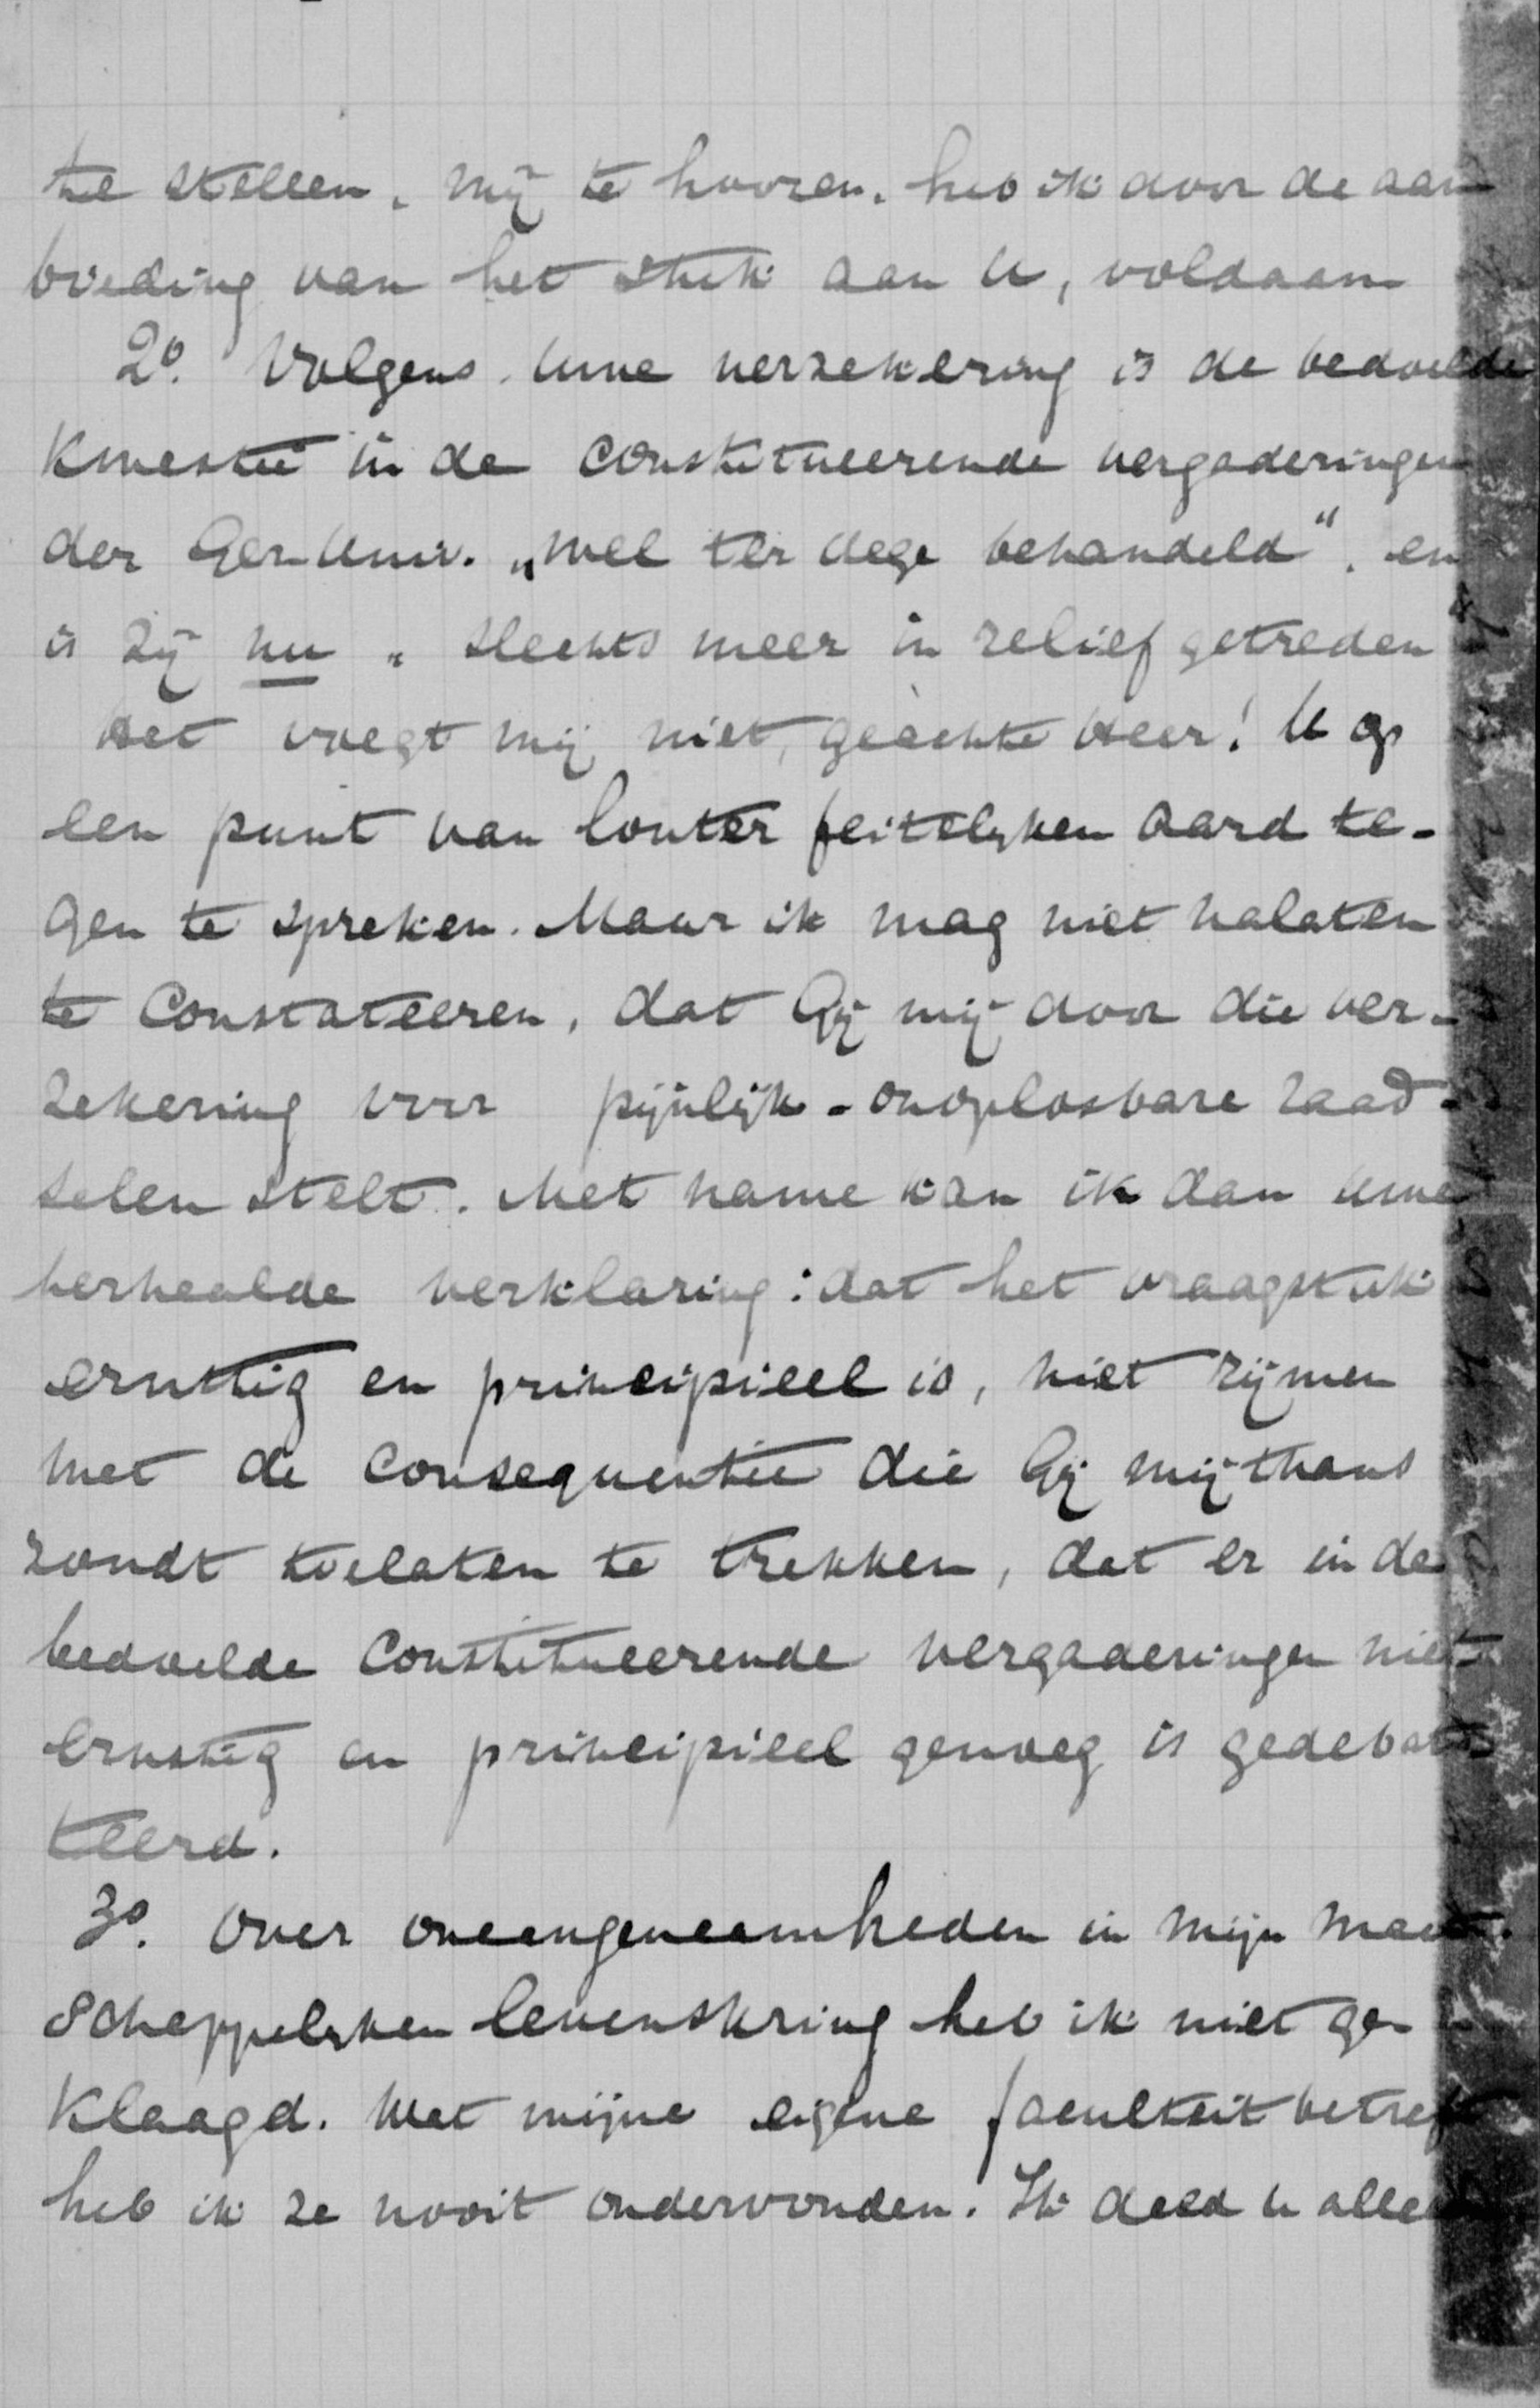 te stellen, mij te hooren, heb ik door de aan
bieding van het stuk aan U, voldaan
2º. Volgens Uwe verzekering is de bedoelde
kwestie in de constitueerende vergaderingen
der Ger. Univ. „wel ter dege behandeld", en
is zij nu „slechts meer in relief getreden"
Het voegt mij niet, geachte Heer! U op
een punt van louter feitelyken aard te-
gen te spreken. Maar ik mag niet nalaten
te constateeren, dat Gij mij door die ver-
zekering voor pijnlijk-onoplosbare raad-
selen stelt. Met name kan ik dan Uwe
herhaalde verklaring: dat het vraagstuk
ernstig en principieel is, niet rijmen
met de consequentie die Gij mij thans
zoudt toelaten te trekken, dat er in de
bedoelde constitueerende vergaderingen niet
ernstig en principieel genoeg is gedebat-
teerd.
3º. Over onaangenaamheden in mijn maat-
schappelyken levenskring heb ik niet ge-
klaagd. Wat mijne eigene faculteit betreft
heb ik ze nooit ondervonden. Ik deed U